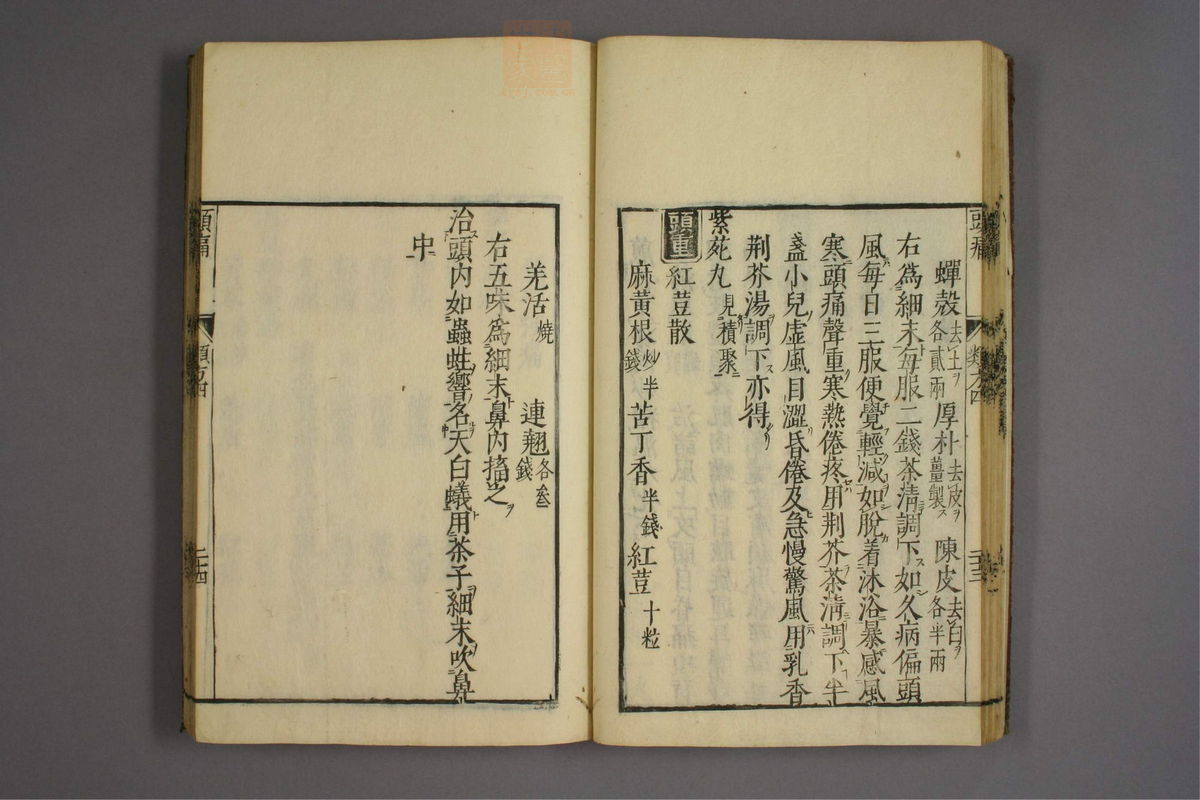 頭痛 類方四 二十三
蟬殻去土ヲ各貳兩 厚朴去皮ヲ薑製ス 陳皮去白ヲ各半兩
右為細末每服二錢茶淸調下如久病偏頭
風每日三服便覺輕減如脫着沐浴暴感風
寒頭痛聲重寒熱倦疼用荆芥茶淸調下半
盞小兒虛風目澀昏倦及急慢驚風用乳香
荆芥湯調下亦得
紫菀丸見積聚ニ
頭重 紅荳散
麻黃根炒半錢 苦丁香半錢 紅荳十粒
羌活燒 連翹各叁錢
右五味為細末鼻內搐之
治頭內如蟲蛀響名天白蟻用茶子細末吹鼻
中
頭痛 類方四 二十四